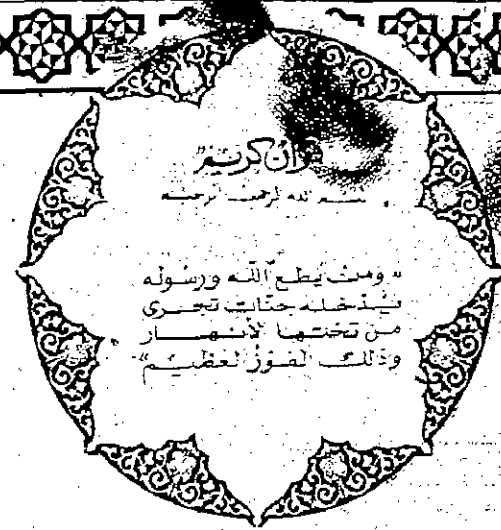 قرآن كريم
بسم الله الرحمن الرحيم
"ومن يطع الله ورسوله
يدخله جنات تجري
من تحتها الأنهار
وذلك الفوز العظيم"